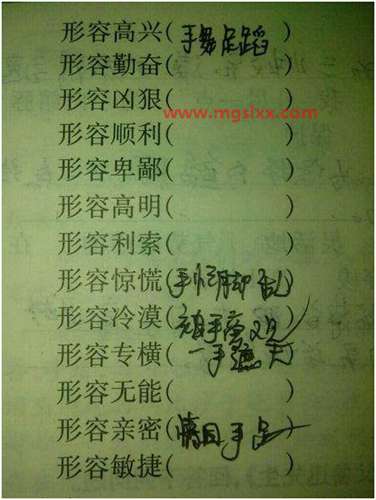 形容高兴(手舞足蹈)
形容勤奋( )
形容凶狠( )
www.mgslxx.com
形容顺利( )
形容卑鄙( )
形容高明( )
形容利索( )
形容惊慌(手忙脚乱)
形容冷漠(袖手旁观)
形容专横(一手遮天)
形容无能( )
形容亲密(情同手足)
形容敏捷( )